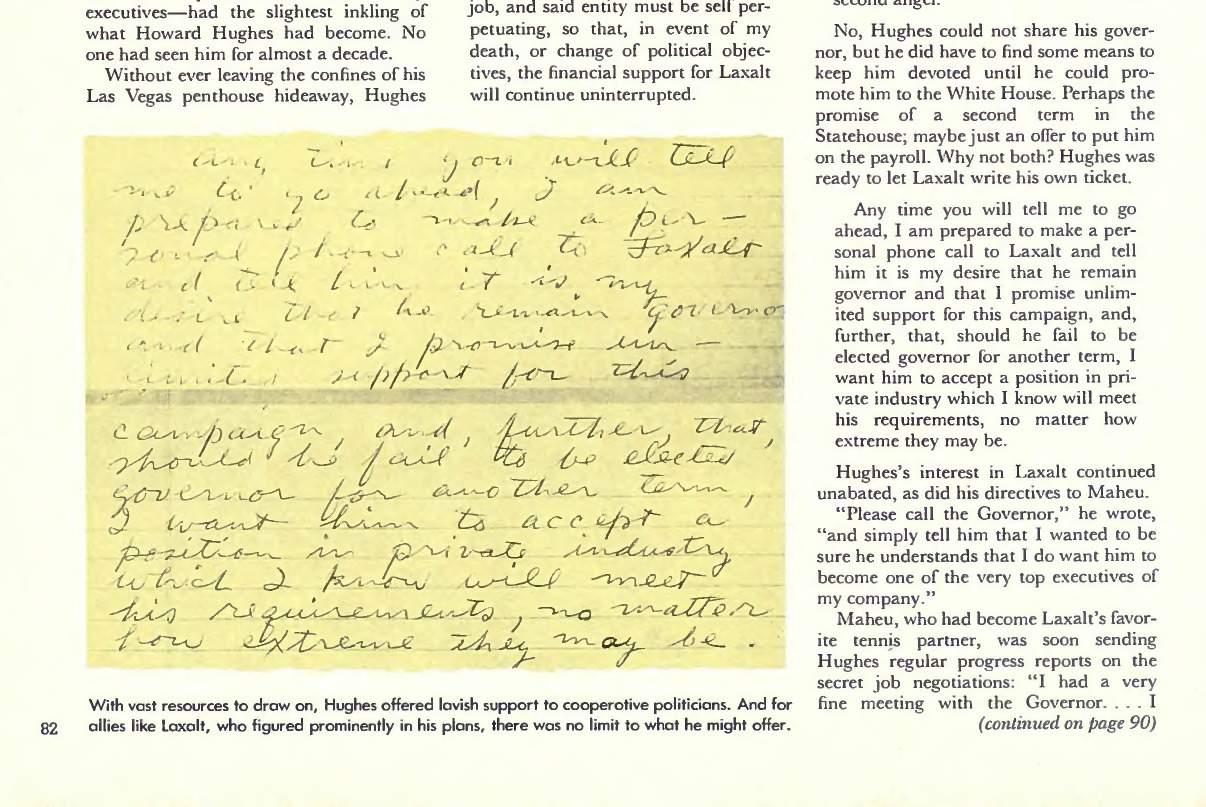 executives—had the slightest inkling of
what Howard Hughes had become. No
one had seen him for almost a decade.
Without ever leaving the confines of his
Las Vegas penthouse hideaway, Hughes
job, and said entity must be self per-
petuating, so that, in event of my
death, or change of political objec-
tives, the financial support for Laxalt
will continue uninterrupted.
any time you will tell
me to go ahead, I am
prepared to make a per-
sonal phone call to Laxalt
and tell him it is my
desire that he remain governo
and that I promise un-
limited support for this
campaign, and, further, that,
should he fail to be elected
governor for another term,
I want him to accept a
position in private industry
which I know will meet
his requirements, no matter
how extreme they may be.
With vast resources to draw on, Hughes offered lavish support to cooperative politicians. And for
allies like Laxalt, who figured prominently in his plans, there was no limit to what he might offer.
82
second angel.
No, Hughes could not share his gover-
nor, but he did have to find some means to
keep him devoted until he could pro-
mote him to the White House. Perhaps the
promise of a second term in the
Statehouse; maybe just an offer to put him
on the payroll. Why not both? Hughes was
ready to let Laxalt write his own ticket.
Any time you will tell me to go
ahead, I am prepared to make a per-
sonal phone call to Laxalt and tell
him it is my desire that he remain
governor and that I promise unlim-
ited support for this campaign, and,
further, that, should he fail to be
elected governor for another term, I
want him to accept a position in pri-
vate industry which I know will meet
his requirements, no matter how
extreme they may be.
Hughes's interest in Laxalt continued
unabated, as did his directives to Maheu.
"Please call the Governor," he wrote,
"and simply tell him that I wanted to be
sure he understands that I do want him to
become one of the very top executives of
my company."
Maheu, who had become Laxalt's favor-
ite tennis partner, was soon sending
Hughes regular progress reports on the
secret job negotiations: "I had a very
fine meeting with the Governor. . . . I
(continued on page 90)